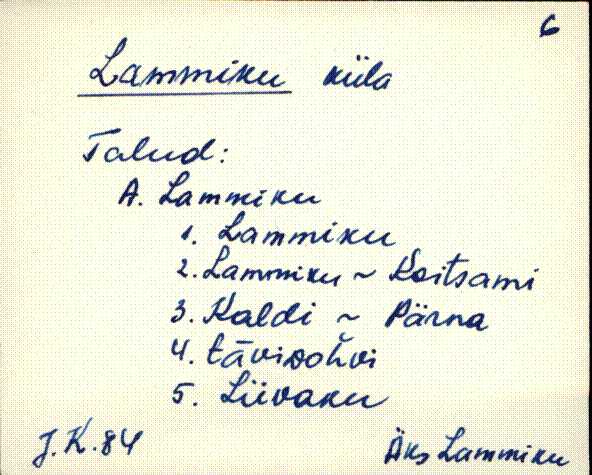 6
Lammiku küla
Talud:
A. Lammiku
1. Lammiku
2. Lammiku ~ Koitsami
3. Kaldi ~ Pärna
4.
5. Liivaku
J.K.84 Äks Lammiku